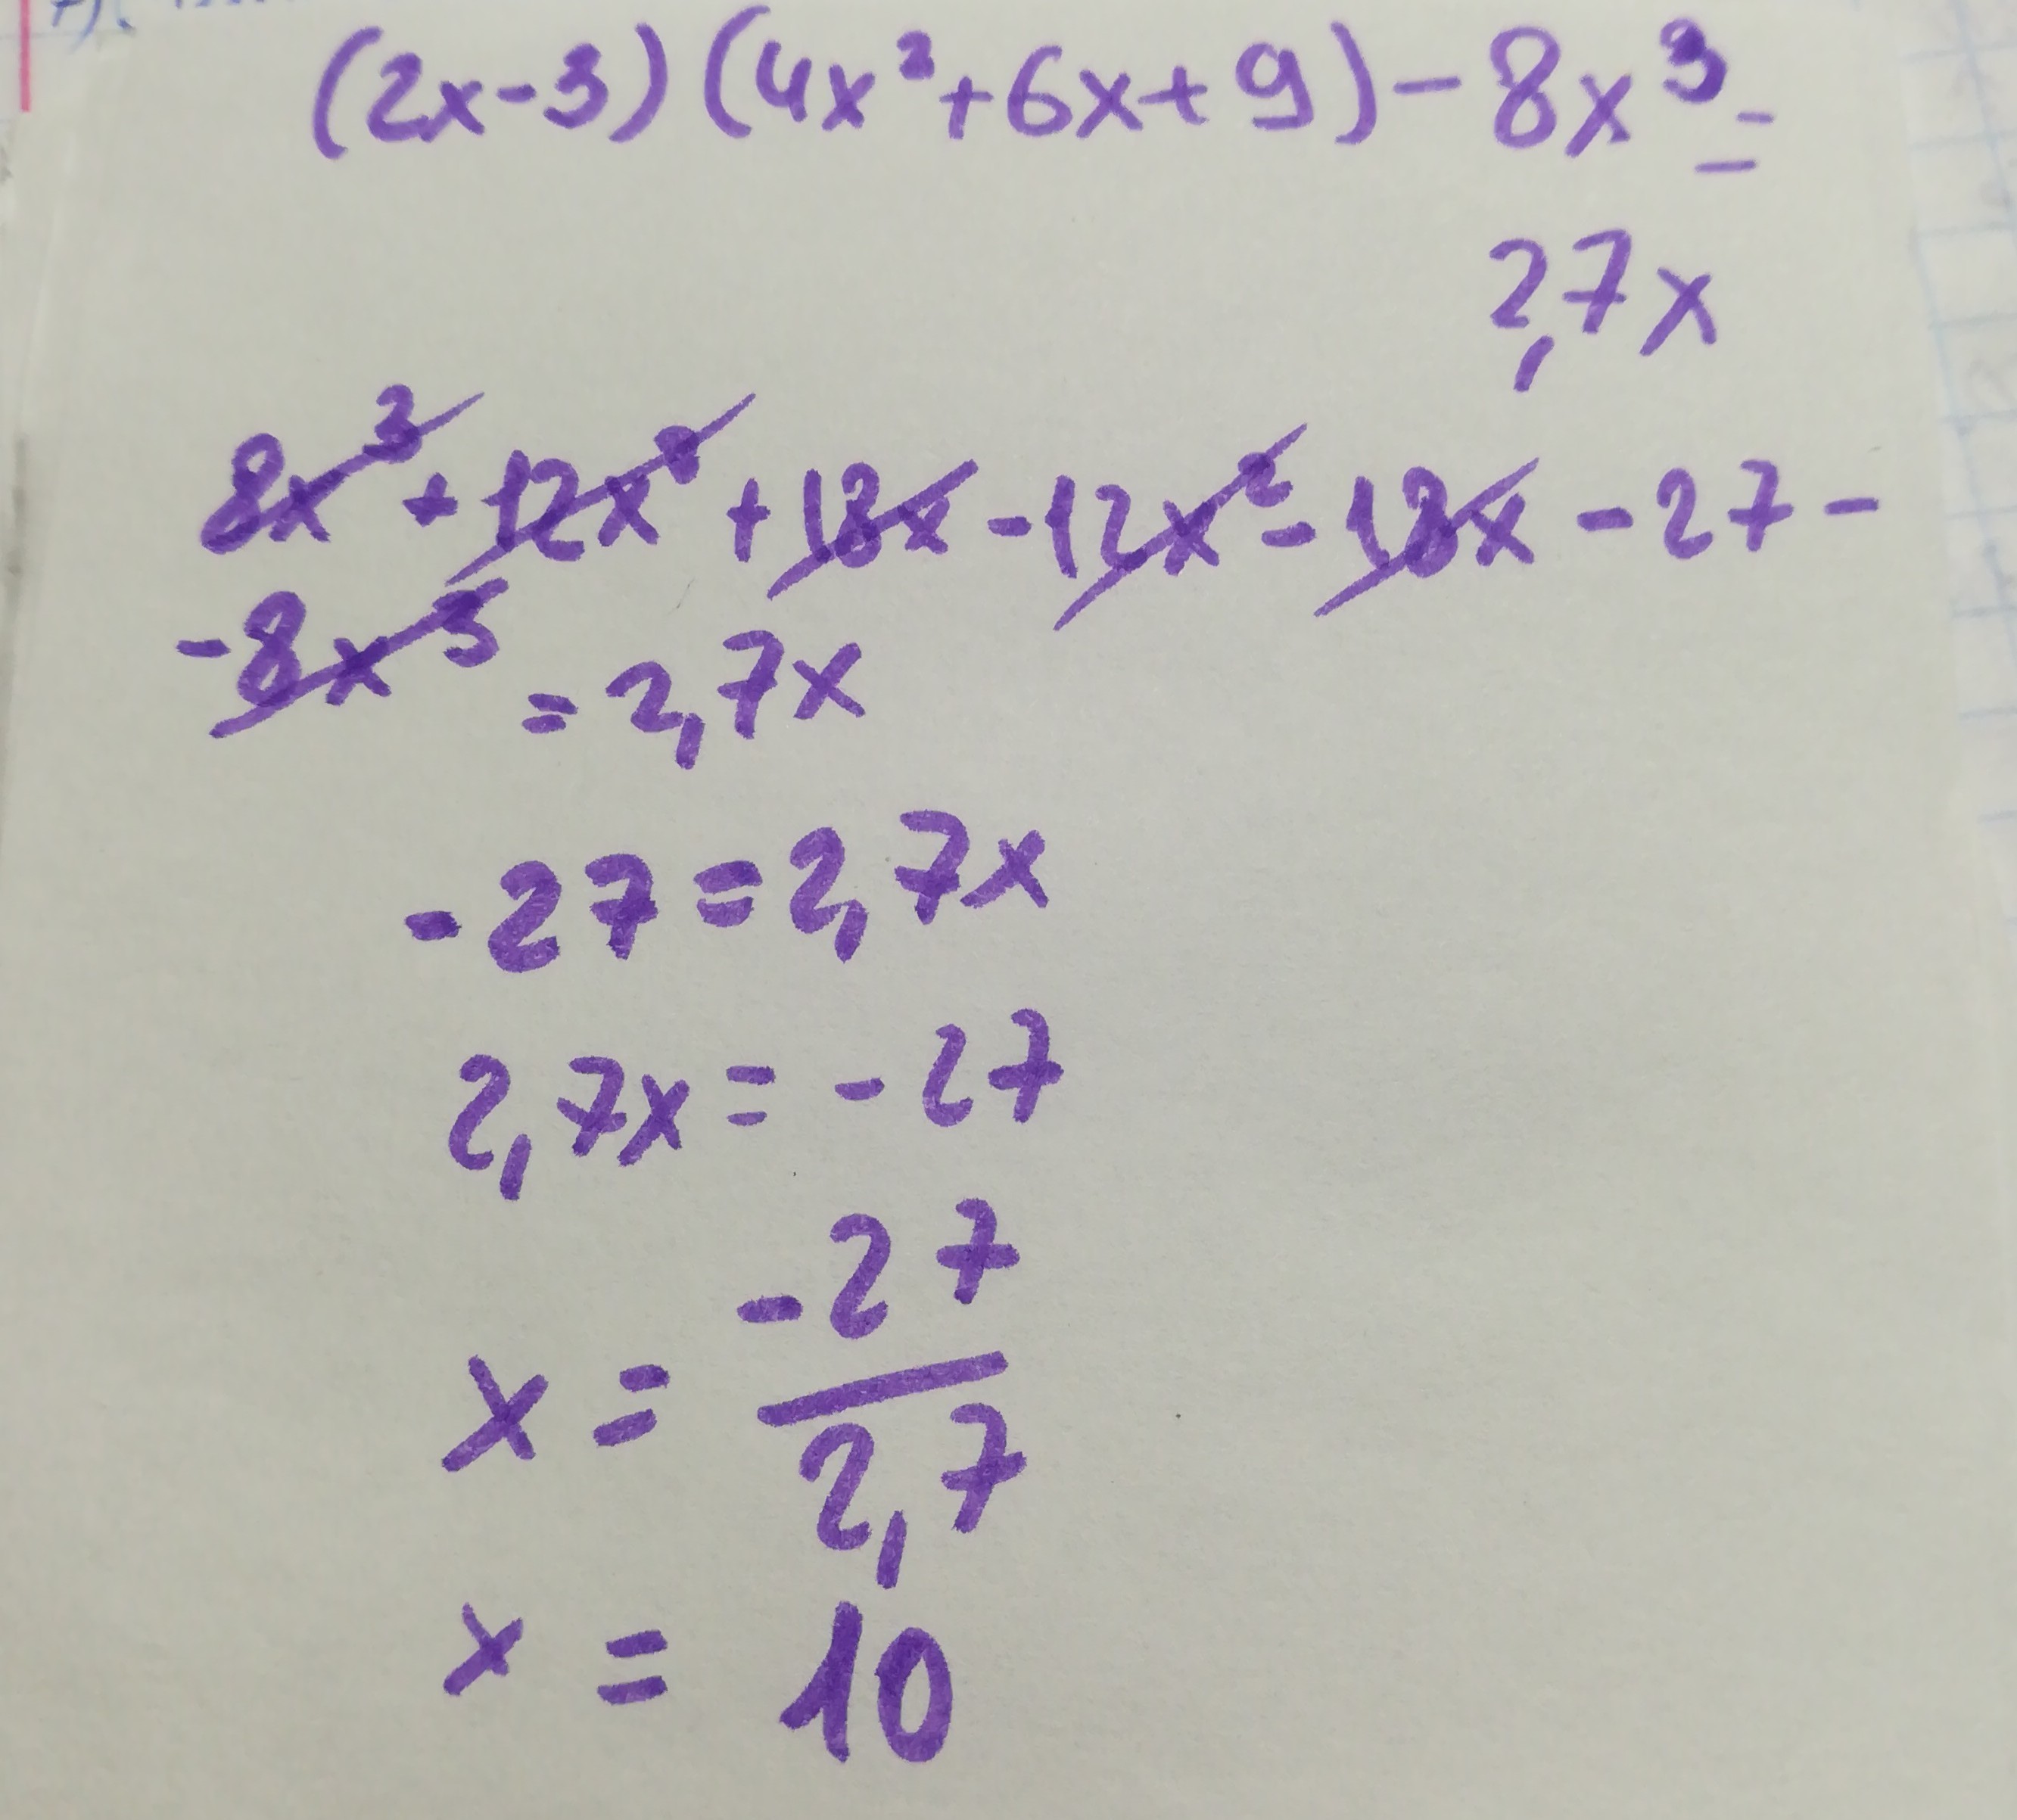 (2x-3)(4x²+6x+9)-8x³=
2,7x
8x³+12x²+18x-12x²-18x-27-
-8x³=2,7x
-27=2,7x
2,7x=-27
x=-27/2,7
x=10